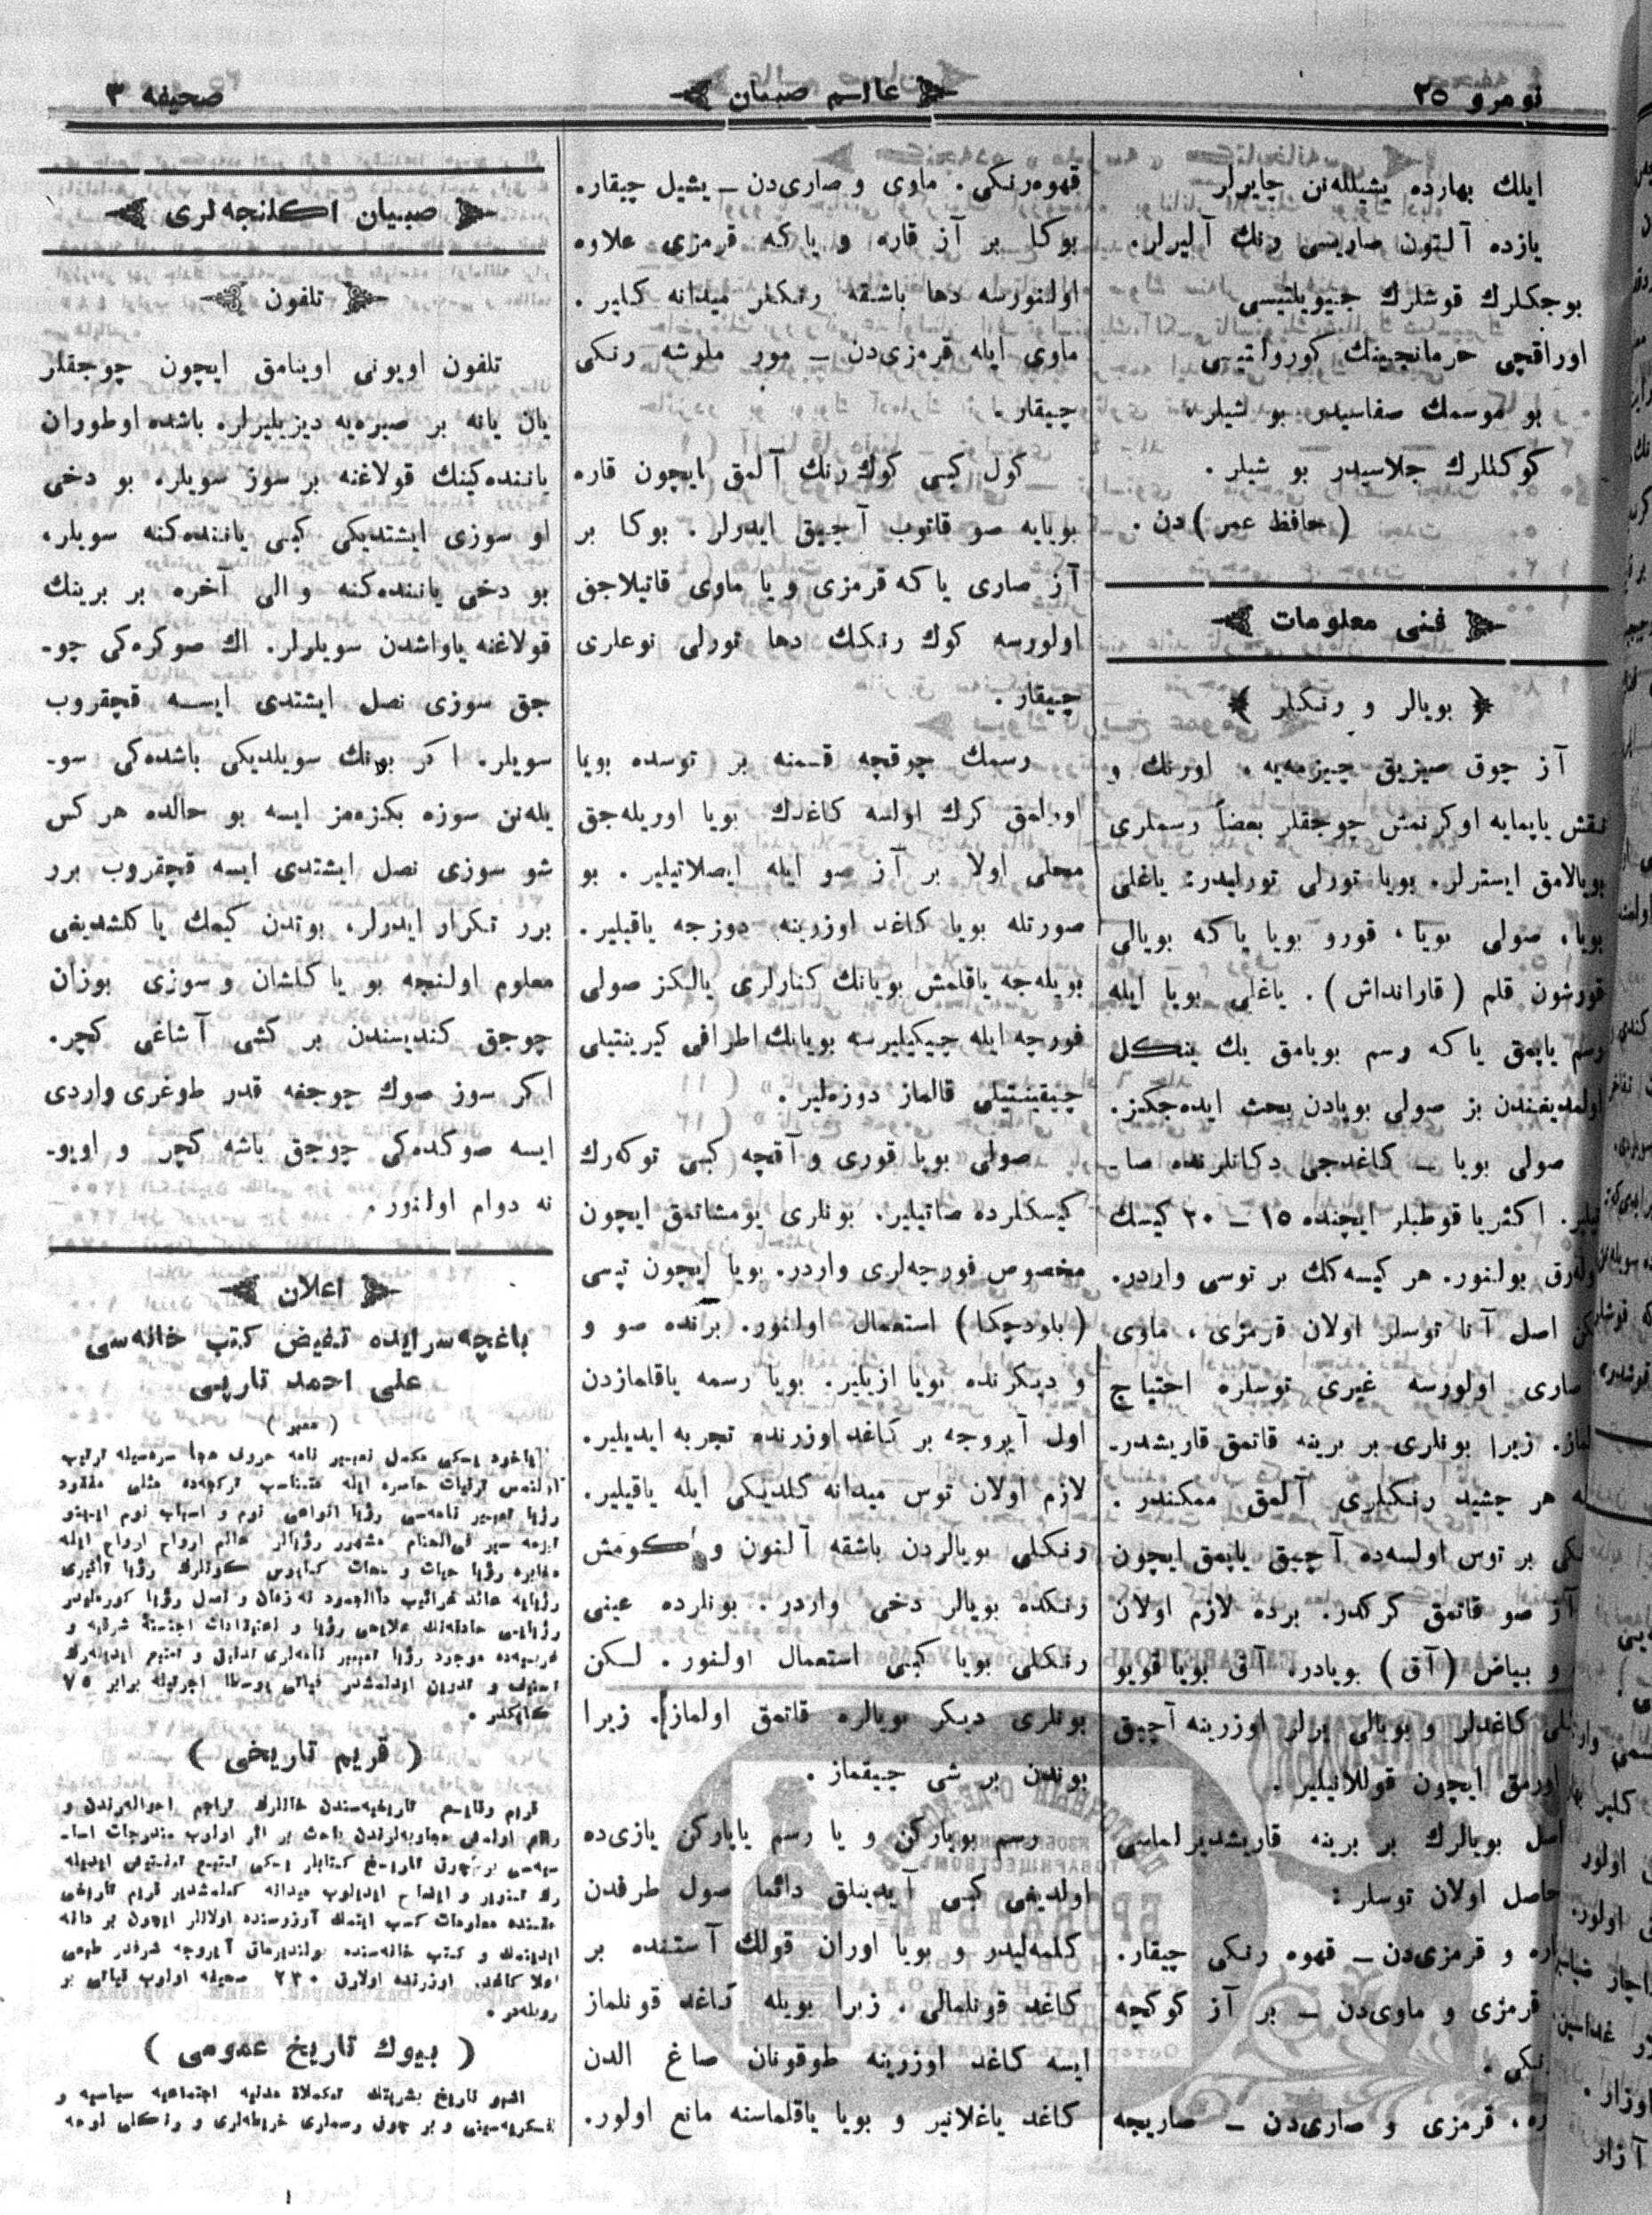 نومرو ٢٥
عالم صبیان
صحیفه ٣
ایلك بهارده یشیللەنن چایرلر
یازده آلتون صاریسی رنك آلیرلر.
بوجكلرك قوشلرك جیویلتیسی
اوراقچی حرمانجینك كورولتیسی
بو موسمك صفاسیدر بو شیلر،
كوكللرك جلاسیدر بو شیلر.
(حافظ عمر) دن.
فنی معلومات
بویالر و رنكلر
آز چوق صیزیق چیزمەیه، اورنك و
نقش یاپمایه اوكرنمش چوجقلر بعضاً رسملری
بویالامق ایسترلر. بویا تورلی تورلیدر: یاغلی
بویا، صولی بویا، قورو بویا یاكه بویالی
قورشون قلم (قارانداش). یاغلی بویا ایله
رسم یاپمق یاكه رسم بویامق پك ینكل
اولمدیغندن بز صولی بویادن بحث ایدەجكز.
صولی بویا ــ كاغدجی دكانلرنده صا-
تیلیر. اكثریا قوطیلر ایچنده ١٥ ــ ٢٠ كیسك
اولەرق بولنور. هر كیسەكك بر توسی واردر.
اصل آنا توسلر اولان قرمزی، ماوی
صاری اولورسه غیری توسلره احتیاج
اولماز. زیرا بونلری بر برینه قاتمق قاریشدر-
هر چشید رنكلری آلمق ممكندر.
بر توس اولسەده آچیق یاپمق ایچون
آز صو قاتمق كركدر. برده لازم اولان
و بیاض (آق) بویادر. آق بویا قویو
كاغدلر و بویالی یرلر اوزرینه آچیق
اورمق ایچون قوللانیلیر.
اصل بویالرك بر برینه قاریشدیرلماسی
حاصل اولان توسلر:
قاره و قرمزیدن ــ قهوه رنكی چیقار.
قرمزی و ماویدن ــ بر آز كوكچه
رنكی.
قاره، قرمزی و صاریدن ــ صاریجه
قهوەرنكی. ماوی و صاریدن ــ یشیل چیقار.
بوكا بر آز قاره و یاكه قرمزی علاوه
اولنورسه دها باشقه رنكلر میدانه كلیر.
ماوی ایله قرمزیدن ــ مور ملوشه رنكی
چیقار.
كول كبی كوك رنك آلمق ایچون قاره
بویایه صو قاتوب آچیق ایدرلر. بوكا بر
آز صاری یاكه قرمزی و یا ماوی قاتیلاجق
اولورسه كوك رنكك دها تورلی نوعلری
چیقار.
رسمك چوقچه قسمنه بر توسده بویا
اورلمق كرك اولسه كاغدك بویا اوریلەجق
محلی اولا بر آز صو ایله ایصلاتیلیر. بو
صورتله بویا كاغد اوزرینه دوزجه یاقیلیر.
بویلەجه یاقلمش بویانك كنارلری یالكز صولی
فورچه ایله چیكیلیرسه بویانك اطرافی كیرینتیلی
چیقینتیلی قالماز دوزەلیر.
صولی بویا قوری و آقچه كبی توكەرك
كیسكلرده صاتیلیر. بونلری یومشاتمق ایچون
مخصوص فورچەلری واردر. بویا ایچون تپسی
(بلودچكا) استعمال اولنور. برنده صو و
و دیكرنده بویا ازیلیر. بویا رسمه یاقلمازدن
اول آیروجه بر كاغد اوزرنده تجربه ایدیلیر.
لازم اولان توس میدانه كلدیكی ایله یاقیلیر.
رنكلی بویالردن باشقه آلتون و كومش
رنكده بویالر دخی واردر. بونلرده عینی
رنكلی بویا كبی استعمال اولنور. لكن
بونلری دیكر بویالره قاتمق اولماز. زیرا
بوندن بر شی چیقماز.
رسم بویاركن و یا رسم یاپاركن یازیده
اولدیغی كبی آیدینلق دائما صول طرفدن
كلمەلیدر و بویا اوران قولك آستنده بر
كاغد قونلمالی. زیرا بویله كاغد قونلماز
ایسه كاغد اوزرینه طوقونان صاغ الدن
كاغد یاغلانیر و بویا یاقلماسنه مانع اولور.
صبیان اكلنجەلری
تلفون
تلفون اویونی اوینامق ایچون چوجقلر
یان یانه بر صیرەیه دیزیلیرلر. باشده اوطوران
یانندەكینك قولاغنه بر سوز سویلر. بو دخی
او سوزی ایشتدیكی كبی یانندەكنه سویلر.
بو دخی یانندەكنه والی اخره بر برینك
قولاغنه یاواشدن سویلرلر. اك صوكرەكی چو-
جق سوزی نصل ایشتدی ایسه قچقروب
سویلر. اكر بونك سویلدیكی باشدەكی سو-
یلەنن سوزه بكزەمز ایسه بو حالده هر كس
شو سوزی نصل ایشتدی ایسه قچقروب برر
برر تكرار ایدرلر. بوندن كیمك یاكلشدیغی
معلوم اولنجه بو یاكلشان و سوزی بوزان
چوجق كندیسندن بر كشی آشاغی كچر.
اكر سوز صوك چوجغه قدر طوغری واردی
ایسه صوكدەكی چوجق باشه كچر و اویو-
نه دوام اولنور.
اعلان
باغچەسرایده تفیض كتب خانەسی
علی احمد تارپی
(تعبیر)
یاخود یكی مكمل تعبیر نامه حروف هجا سرەسیله ترتیب
رؤیا تعبیر نامەسی رؤیا انواعی نوم و اسباب نوم
كاپكدر.
(قریم تاریخی)
قریم وقایع تاریخیەسندن خانلرك تراجم احوالەرندن و
حقنده معلومات كسب ایتمك آرزوسنده اولانلر ایچون بر دانه
اعلا كاغد اوزرنده اولارق ٢٣٠ صحیفه اولوب قیاتی بر
روبلەدر.
(بیوك تاریخ عمومی)
اشبو تاریخ بشریتك تكملات مدنیه اجتماعیه سیاسیه و
عسكریەسینی و بر چوق رسملری خریطەلری و رنكلی لوحه